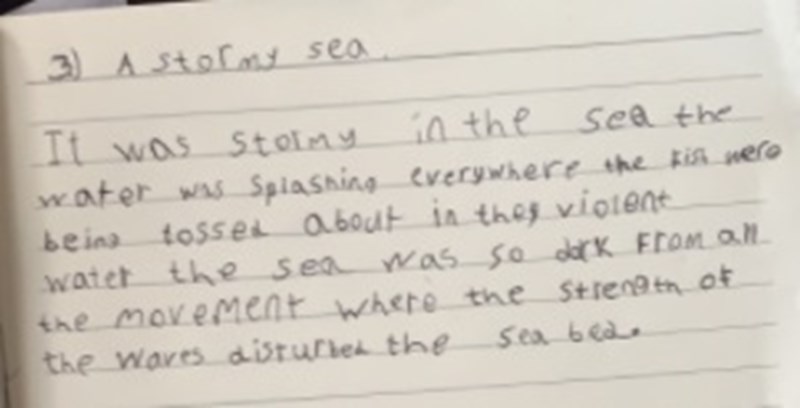 3) A stormy sea.
It was stormy in the sea the
water was splashing everywhere the fish were
being tossed about in they violent
water the sea was so dark from all
the movement where the strength of
the waves disturbed the sea bed.